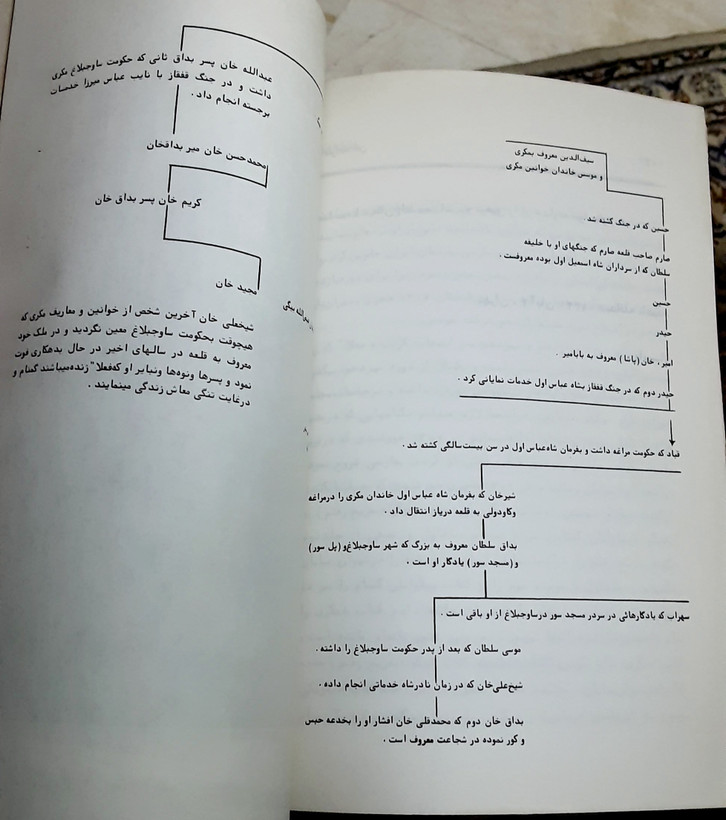 سیف‌الدین معروف بمکری
و موسس خاندان خوانین مکری
حسین که در جنگ کشته شد .
صارم صاحب قلعه صارم که جنگهای او با خلیفه
سلطان که از سرداران شاه اسمعیل اول بوده معروفست .
حسین
حیدر
امیر، خان (پاشا) معروف به بابامیر .
حیدر دوم که در جنگ قفقاز بشاه عباس اول خدمات نمایانی کرد .
قباد که حکومت مراغه داشت و بفرمان شاه‌عباس اول در سن بیست‌سالگی کشته شد .
شیرخان که بفرمان شاه عباس اول خاندان مکری را درمراغه
وکاودولی به قلعه دریاز انتقال داد .
بداق سلطان معروف به بزرگ که شهر ساوجبلاغ‌و (پل سور)
و(مسجد سور) یادگار او است .
سهراب که یادگارهائی در سردر مسجد سور درساوجبلاغ از او باقی است .
موسی سلطان که بعد از پدر حکومت ساوجبلاغ را داشته .
شیخ‌علی‌خان که در زمان نادرشاه خدماتی انجام داده .
بداق خان دوم که محمدقلی خان افشار او را بخدعه حبس
و کور نموده در شجاعت معروف است .
عبدالله خان پسر بداق ثانی که حکومت ساوجبلاغ مکری
داشت و در جنگ قفقاز با نایب عباس میرزا خدمات
برجسته انجام داد .
محمدحسن خان میر بداقخان
کریم خان پسر بداق خان
مجید خان
شیخعلی خان آخرین شخص از خوانین و معاریف مکری که
هیچوقت بحکومت ساوجبلاغ معین نگردید و در ملک خود
معروف به قلعه در سالهای اخیر در حال بدهکاری فوت
نمود و پسرها ونوه‌ها ونبایر او که‌فعلا" زنده‌میباشند گمنام و
درغایت تنگی معاش زندگی مینمایند .